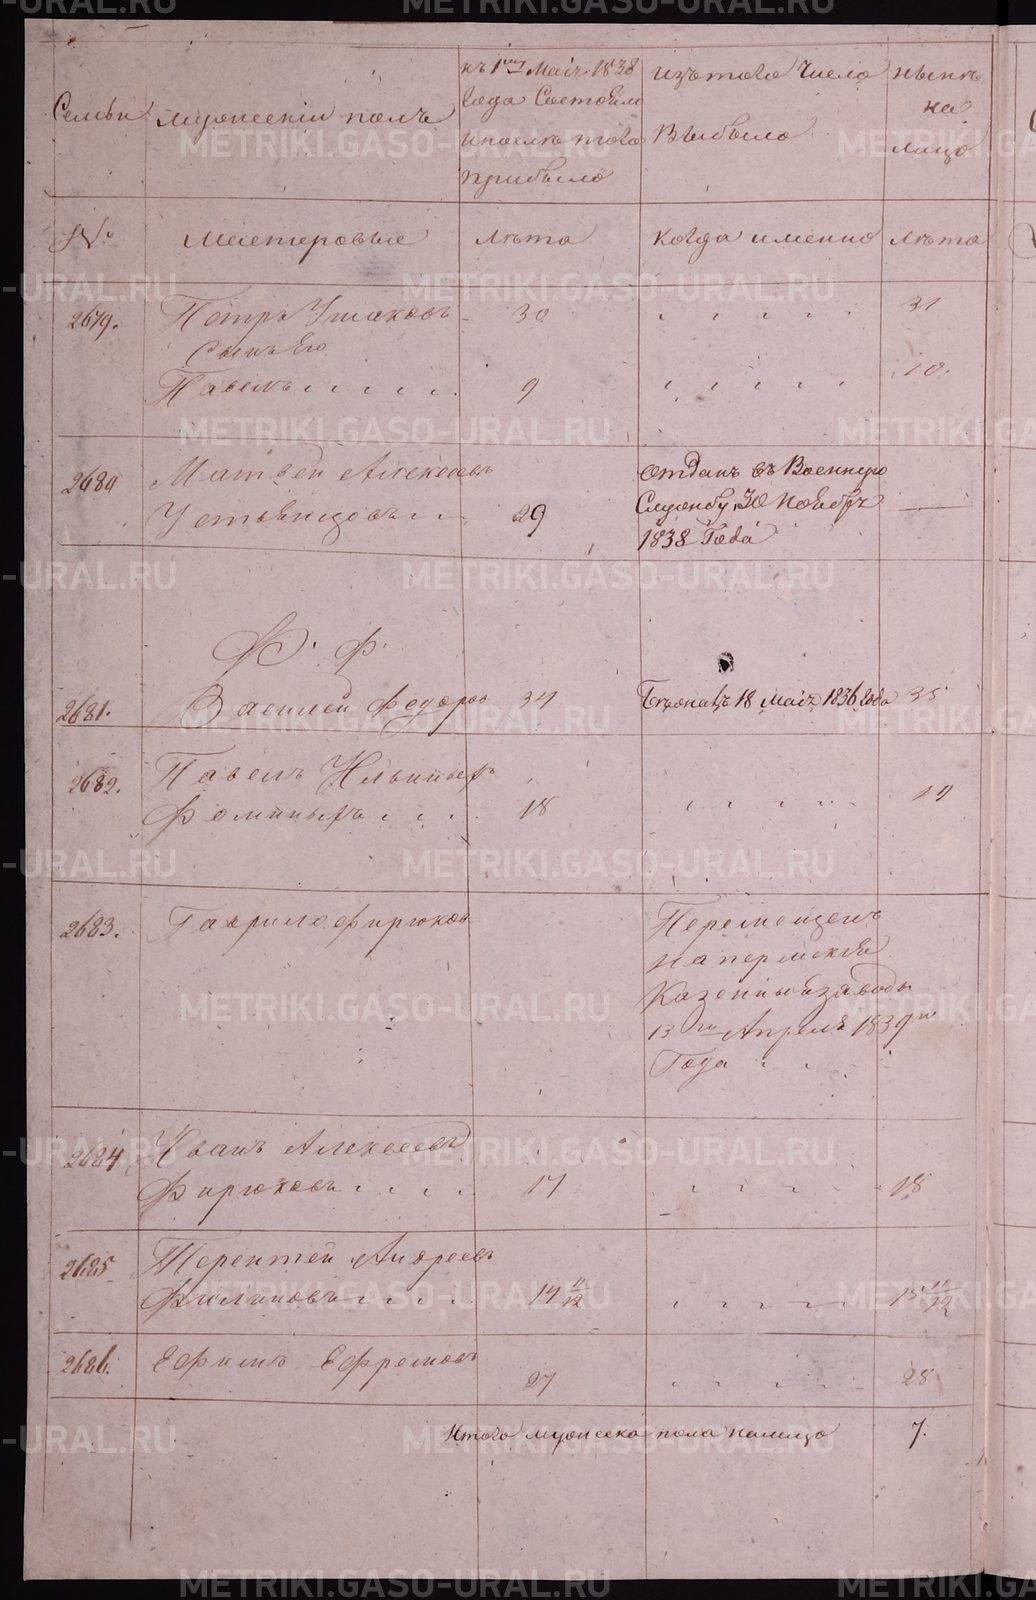 METRIKI.GASO-URAL.RU
Семьи
мужескій полъ
къ 1му Маія 1838
года Состояло
и после того
прибыло
изъ того Числа
Выбыло
ныне
на
лицо
№
мастеровые
лета
когда именно
лета
2679.
Петръ Ушаковъ
30
31
Сынъ Его
Павелъ
9
10.
2680
Матвей Алексеевъ
Отданъ въ Военную
Устьянцовъ
29
Службу 30 Ноября
1838 Года
Ф. Ф.
2681.
Василей Федоров
34
18 Маія 1836 года
35
2682.
Павелъ Ильиныхъ
Фоминыхъ
18
19
2683.
Гаврило Фирюков
Перемещенъ
на пермскія
Казенныя заводы
13го Апреля 1839го
Года
2684
Иванъ Алексеевъ
Фирюковъ
17
18
2685
Терентей Андреевъ
Филиновъ
14 11/12
15 11/12
2686.
Ефимъ Ефремовъ
27
28
Итого мужеска пола налицо
7.